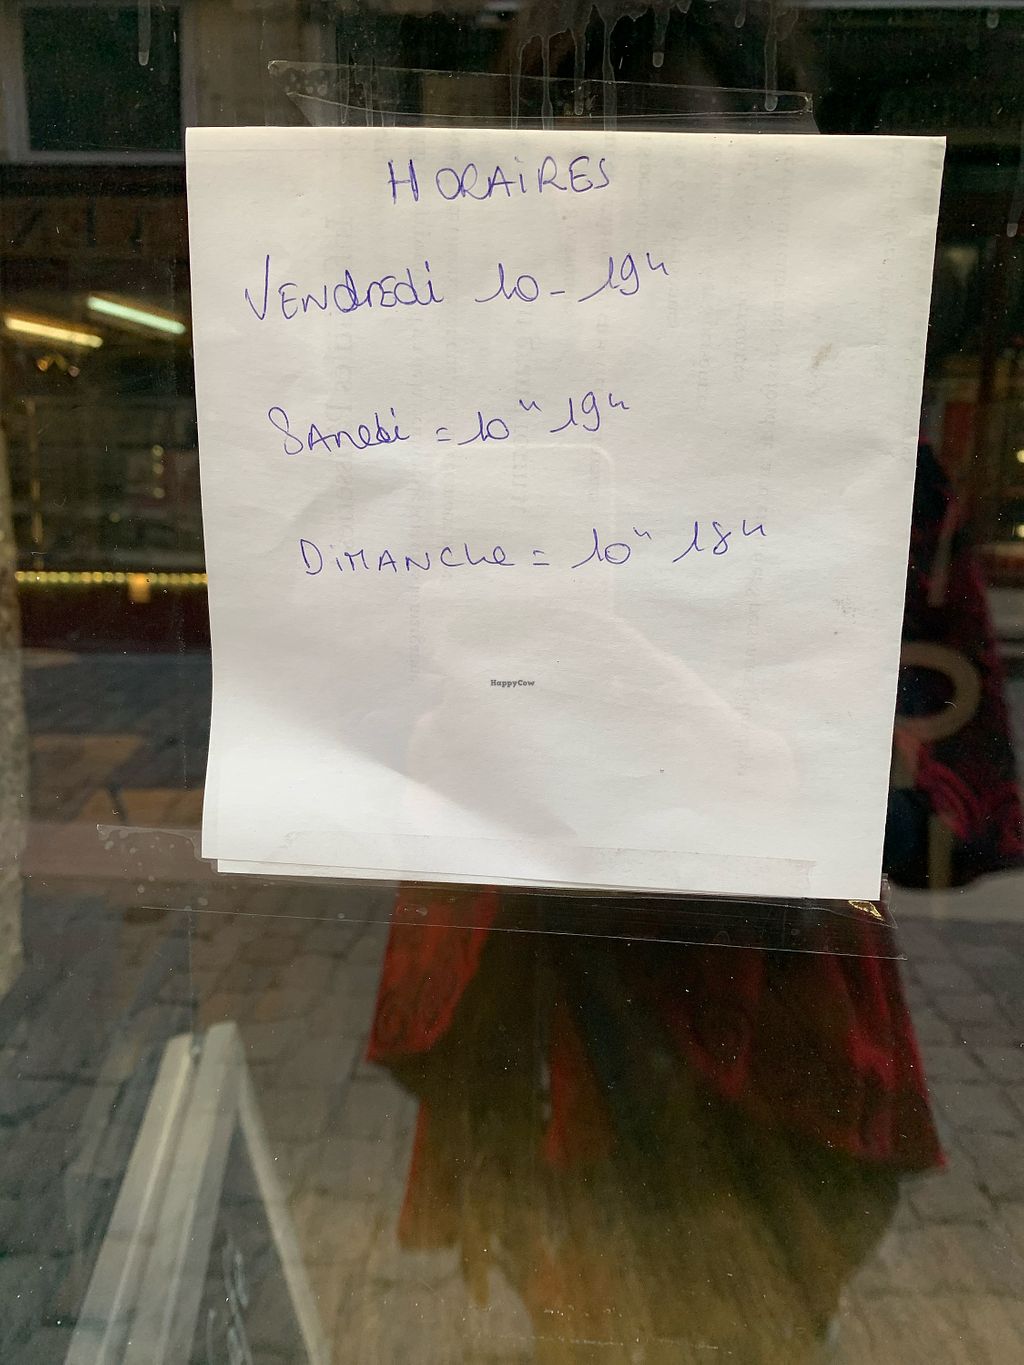 HORAiRES
VENdREdi 10 - 19h
SAMEdi = 10h 19h
DiMANche = 10h 18h
HappyCow